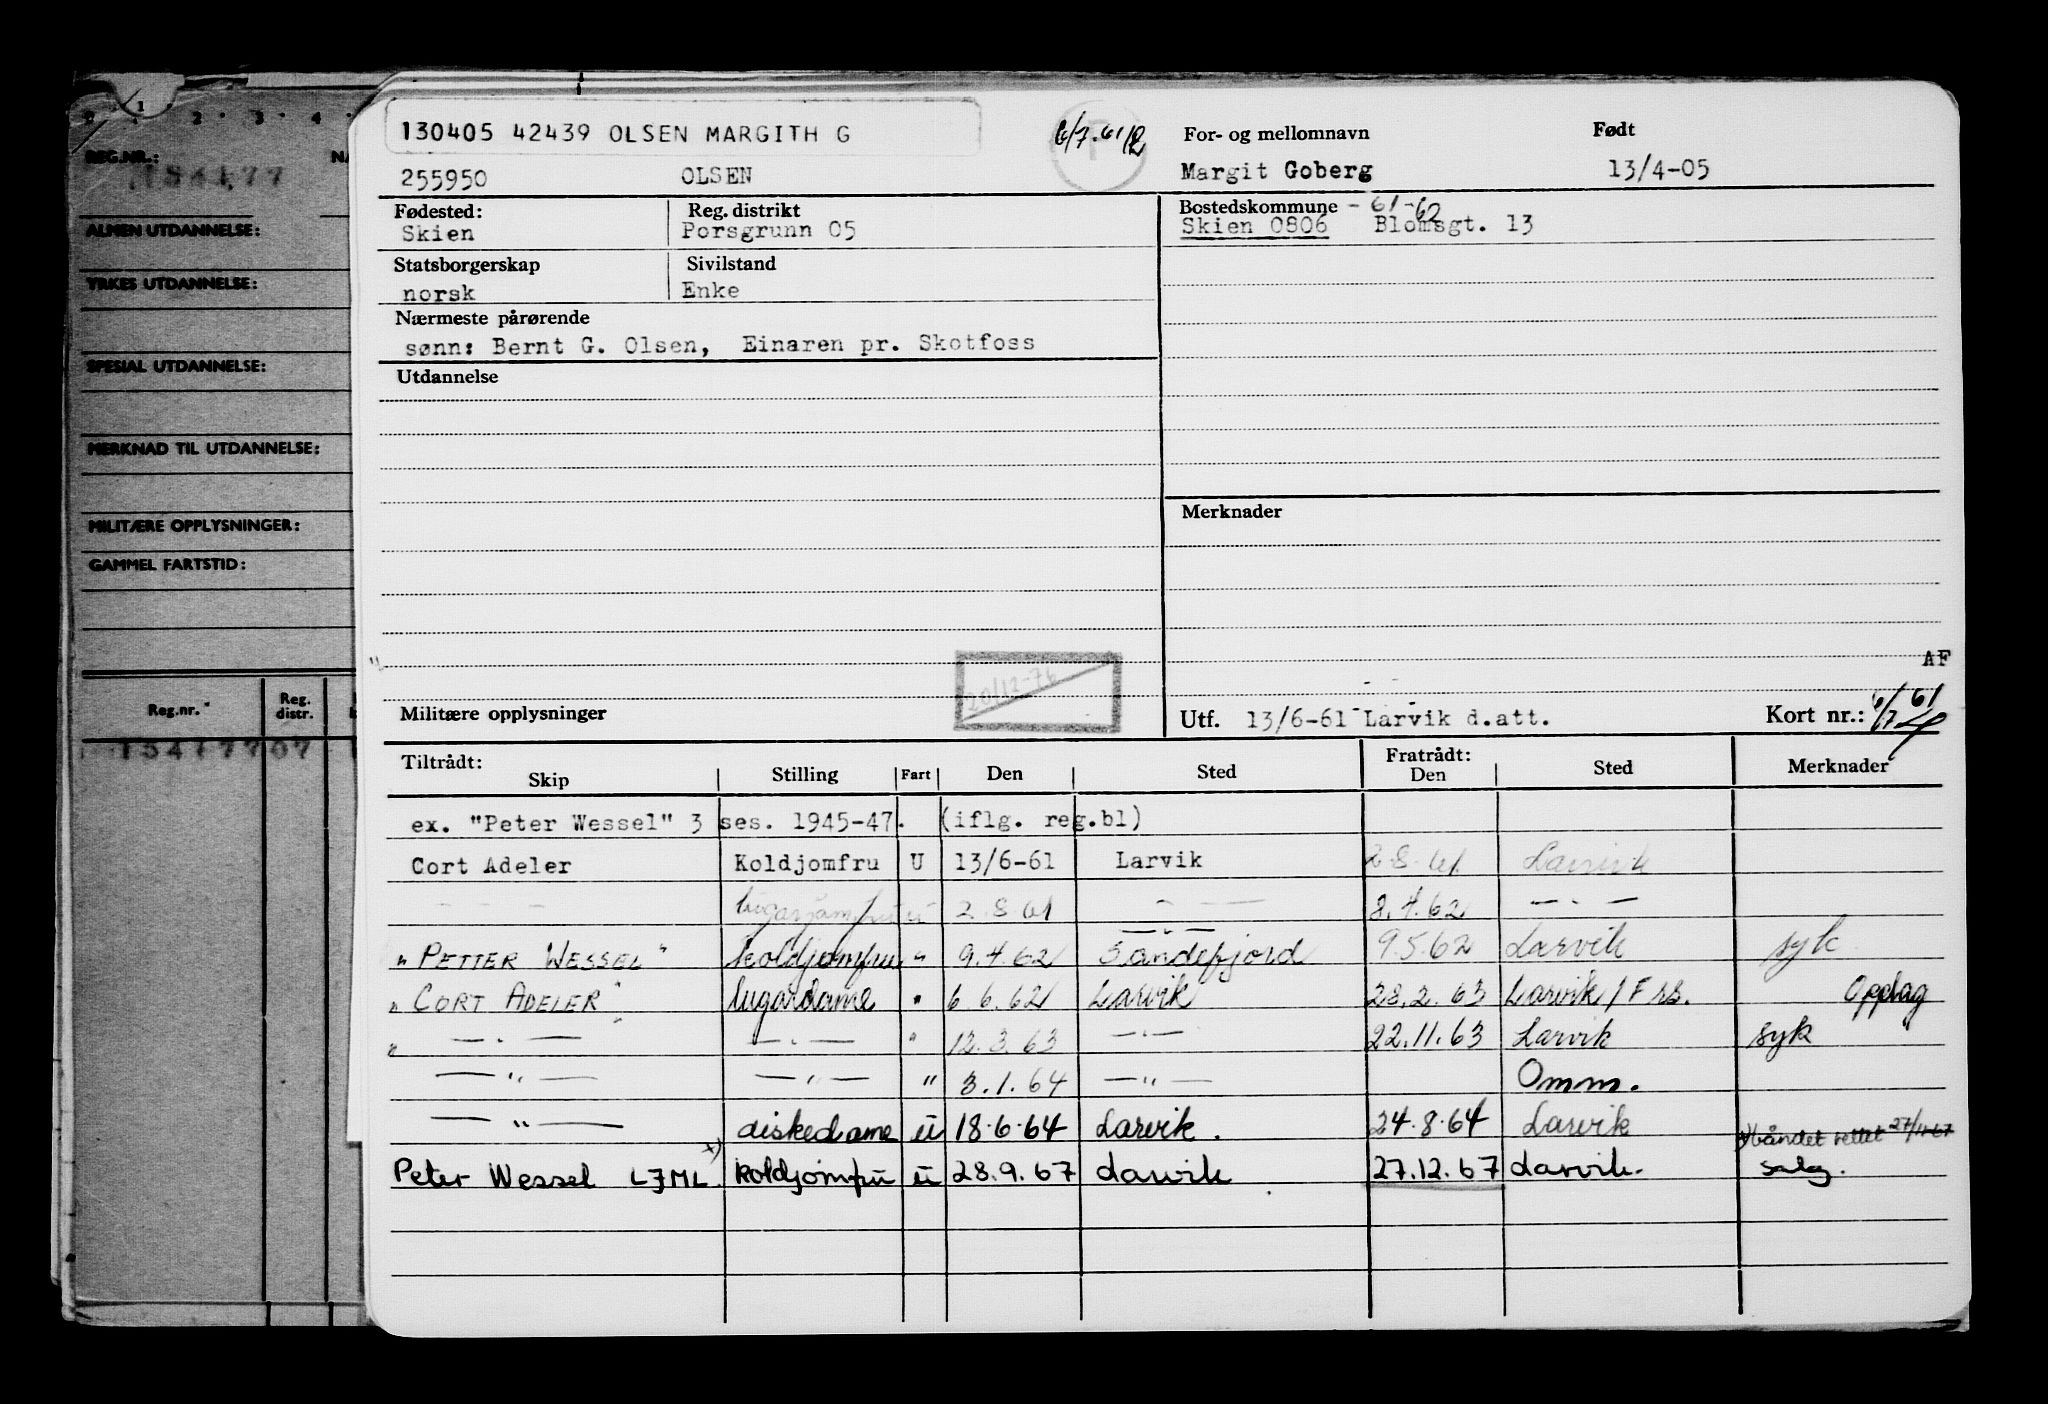 1 2 3 4
REG.NR.:
154177
ALMEN UTDANNELSE:
YRKES UTDANNELSE:
SPESIAL UTDANNELSE:
MERKNAD TIL UTDANNELSE:
MILITÆRE OPPLYSNINGER:
GAMMEL FARTSTID:
Reg.nr. Reg. distr.
154177 07
130405 42439 OLSEN MARGITH G 6/7.61 For- og mellomnavn Født
255950 OLSEN Margit Goberg 13/4-05
Fødested: Reg. distrikt Bostedskommune - 61-62
Skien Porsgrunn 05 Skien 0806 Blomsgt. 13
Statsborgerskap Sivilstand
norsk Enke
Nærmeste pårørende
sønn: Bernt G. Olsen, Einaren pr. Skotfoss
Utdannelse
Merknader
AF
20/12-76
Militære opplysninger Utf. 13/6-61 Larvik d.att. Kort nr.: 6/7 61
Tiltrådt: Skip Stilling Fart Den Sted Fratrådt: Den Sted Merknader
ex. "Peter Wessel" 3 ses. 1945-47. (iflg. reg.bl)
Cort Adeler Koldjomfru U 13/6-61 Larvik 2.8.61. Larvik
— — — lugarjomfru u 2.8.61 — — 8.4.62 — . —
" PETTER WESSEL " koldjomfru " 9.4.62 Sandefjord 9.5.62 Larvik syk
" CORT ADELER " lugardame " 6.6.62 Larvik 28.2.63 Larvik / F ss. Opplag
" — . — " — . — " 12.3.63 — . — 22.11.63 Larvik syk "
— " — — " — " 3.1.64 — " — Omm.
— " — diskedame ü 18.6.64 Larvik. 24.8.64 Larvik
x) båndet rettet 27/11-67
Peter Wessel LJML x) koldjomfru ü 28.9.67 Larvik 27.12.67 Larvik. salg.